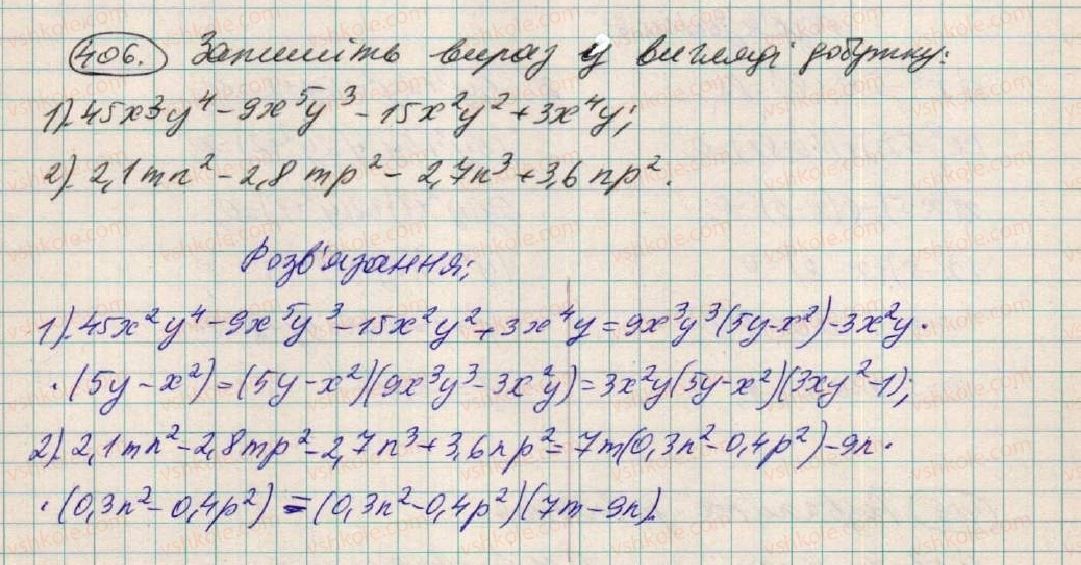 406. Запишіть вираз у вигляді добутку:
1) 45x³y⁴ - 9x⁵y³ - 15x²y² + 3x⁴y;
2) 2,1mn² - 2,8mp² - 2,7n³ + 3,6np².
Розв'язання:
1) 45x²y⁴ - 9x⁵y³ - 15x²y² + 3x⁴y = 9x³y³(5y - x²) - 3x²y ·
· (5y - x²) = (5y - x²)(9x³y³ - 3x²y) = 3x²y(5y - x²)(3xy² - 1);
2) 2,1mn² - 2,8mp² - 2,7n³ + 3,6np² = 7m(0,3n² - 0,4p²) - 9n ·
· (0,3n² - 0,4p²) = (0,3n² - 0,4p²)(7m - 9n).